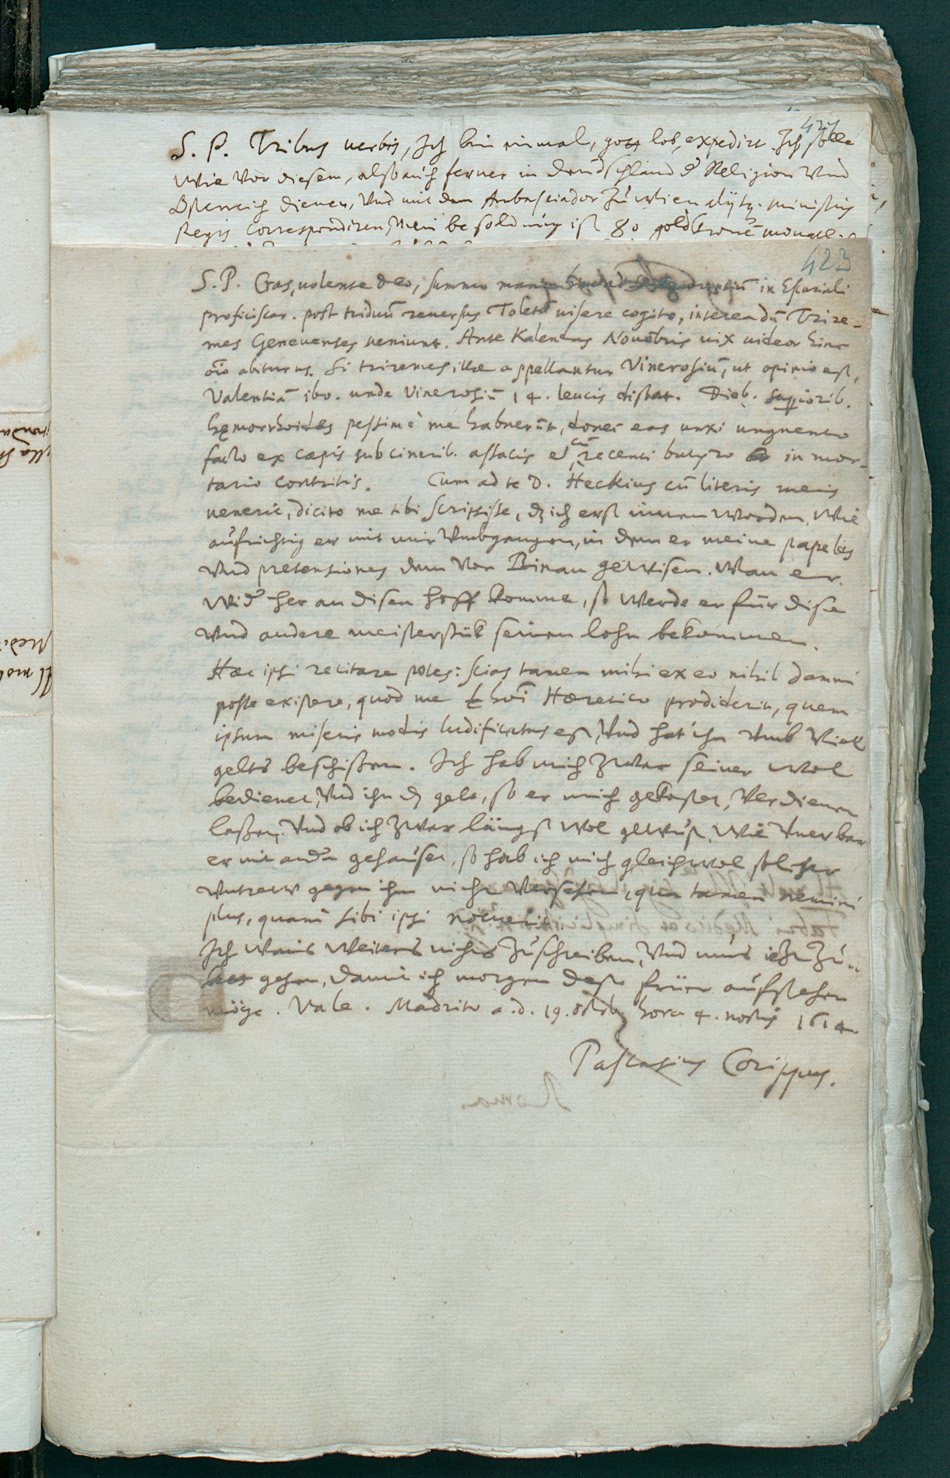 427
S. P. Tribus verbis, Ich bin einmal, gott lob, expedirt. Ich solle
wie vor diesem, alßo auch ferner in Deudschland d' Religion und
Österreich dienen, und mit dem Ambasciador zu Wien ministris
Regis correspondiren, Mein besoldung ist 80 goldkronen monatl.
423
S. P. Cras, volente deo, summo mane in Escuriali
proficiscar. post triduū reversus Toletū visere cogito, interea dū Trire-
mes Genevenses veniunt. Ante Kalendas Novēbris vix videor hinc
oīo abiturus. Si triremes illae appellantur Vinerosiū, ut opinio est,
Valentiā ibo. unde Vinerosiū 14. leucis distat. Dieb. superiorib.
hęmorrhoides pessimè me habuerūt, donec eas unxi unguento
facto ex caepis sub cinerib. assatis et cū recenti butyro in mor-
tario contritis. Cum ad te D. Heckius cū literis meis
venerit, dicito me tibi scripsisse, dz ich erst innen worden, wie
aufrichtig er mit mir umbgangen, in dem er meine papeles
und pretensiones dem von Binau gewisen. Wan er
wid' her an disen hoff komme, so werde er für dise
und andere meisterstük seinen lohn bekommen.
Haec ipsi recitare potes: scias tamen mihi ex eo nihil damni
posse existere, quod me hoi Haeretico prodiderit, quem
ipsum miseris modis ludificatus est, und hat ihn umb viel
gelts beschissen. Ich hab mich zwar seiner wol
bedienet, und ihn dz gelt, so er mich gekostet, verdienen
laßen, und ob ich zwar längst wol gewust, wie
er mit andn gehauset, so hab ich mich gleichwol solcher
untrew gegen ihm nicht versehen, qua tamen nemini
plus, quam sibi ipsi nocuerit.
Ich wais weiters nichts zu schreiben, und mus iezt zu
bett gehen, damit ich morgen dest früer aufstehen
möge. Vale. Madrito a. d. 19. octob. hora 4. noctis 1614.
Paschasius Corippus.
Roma.